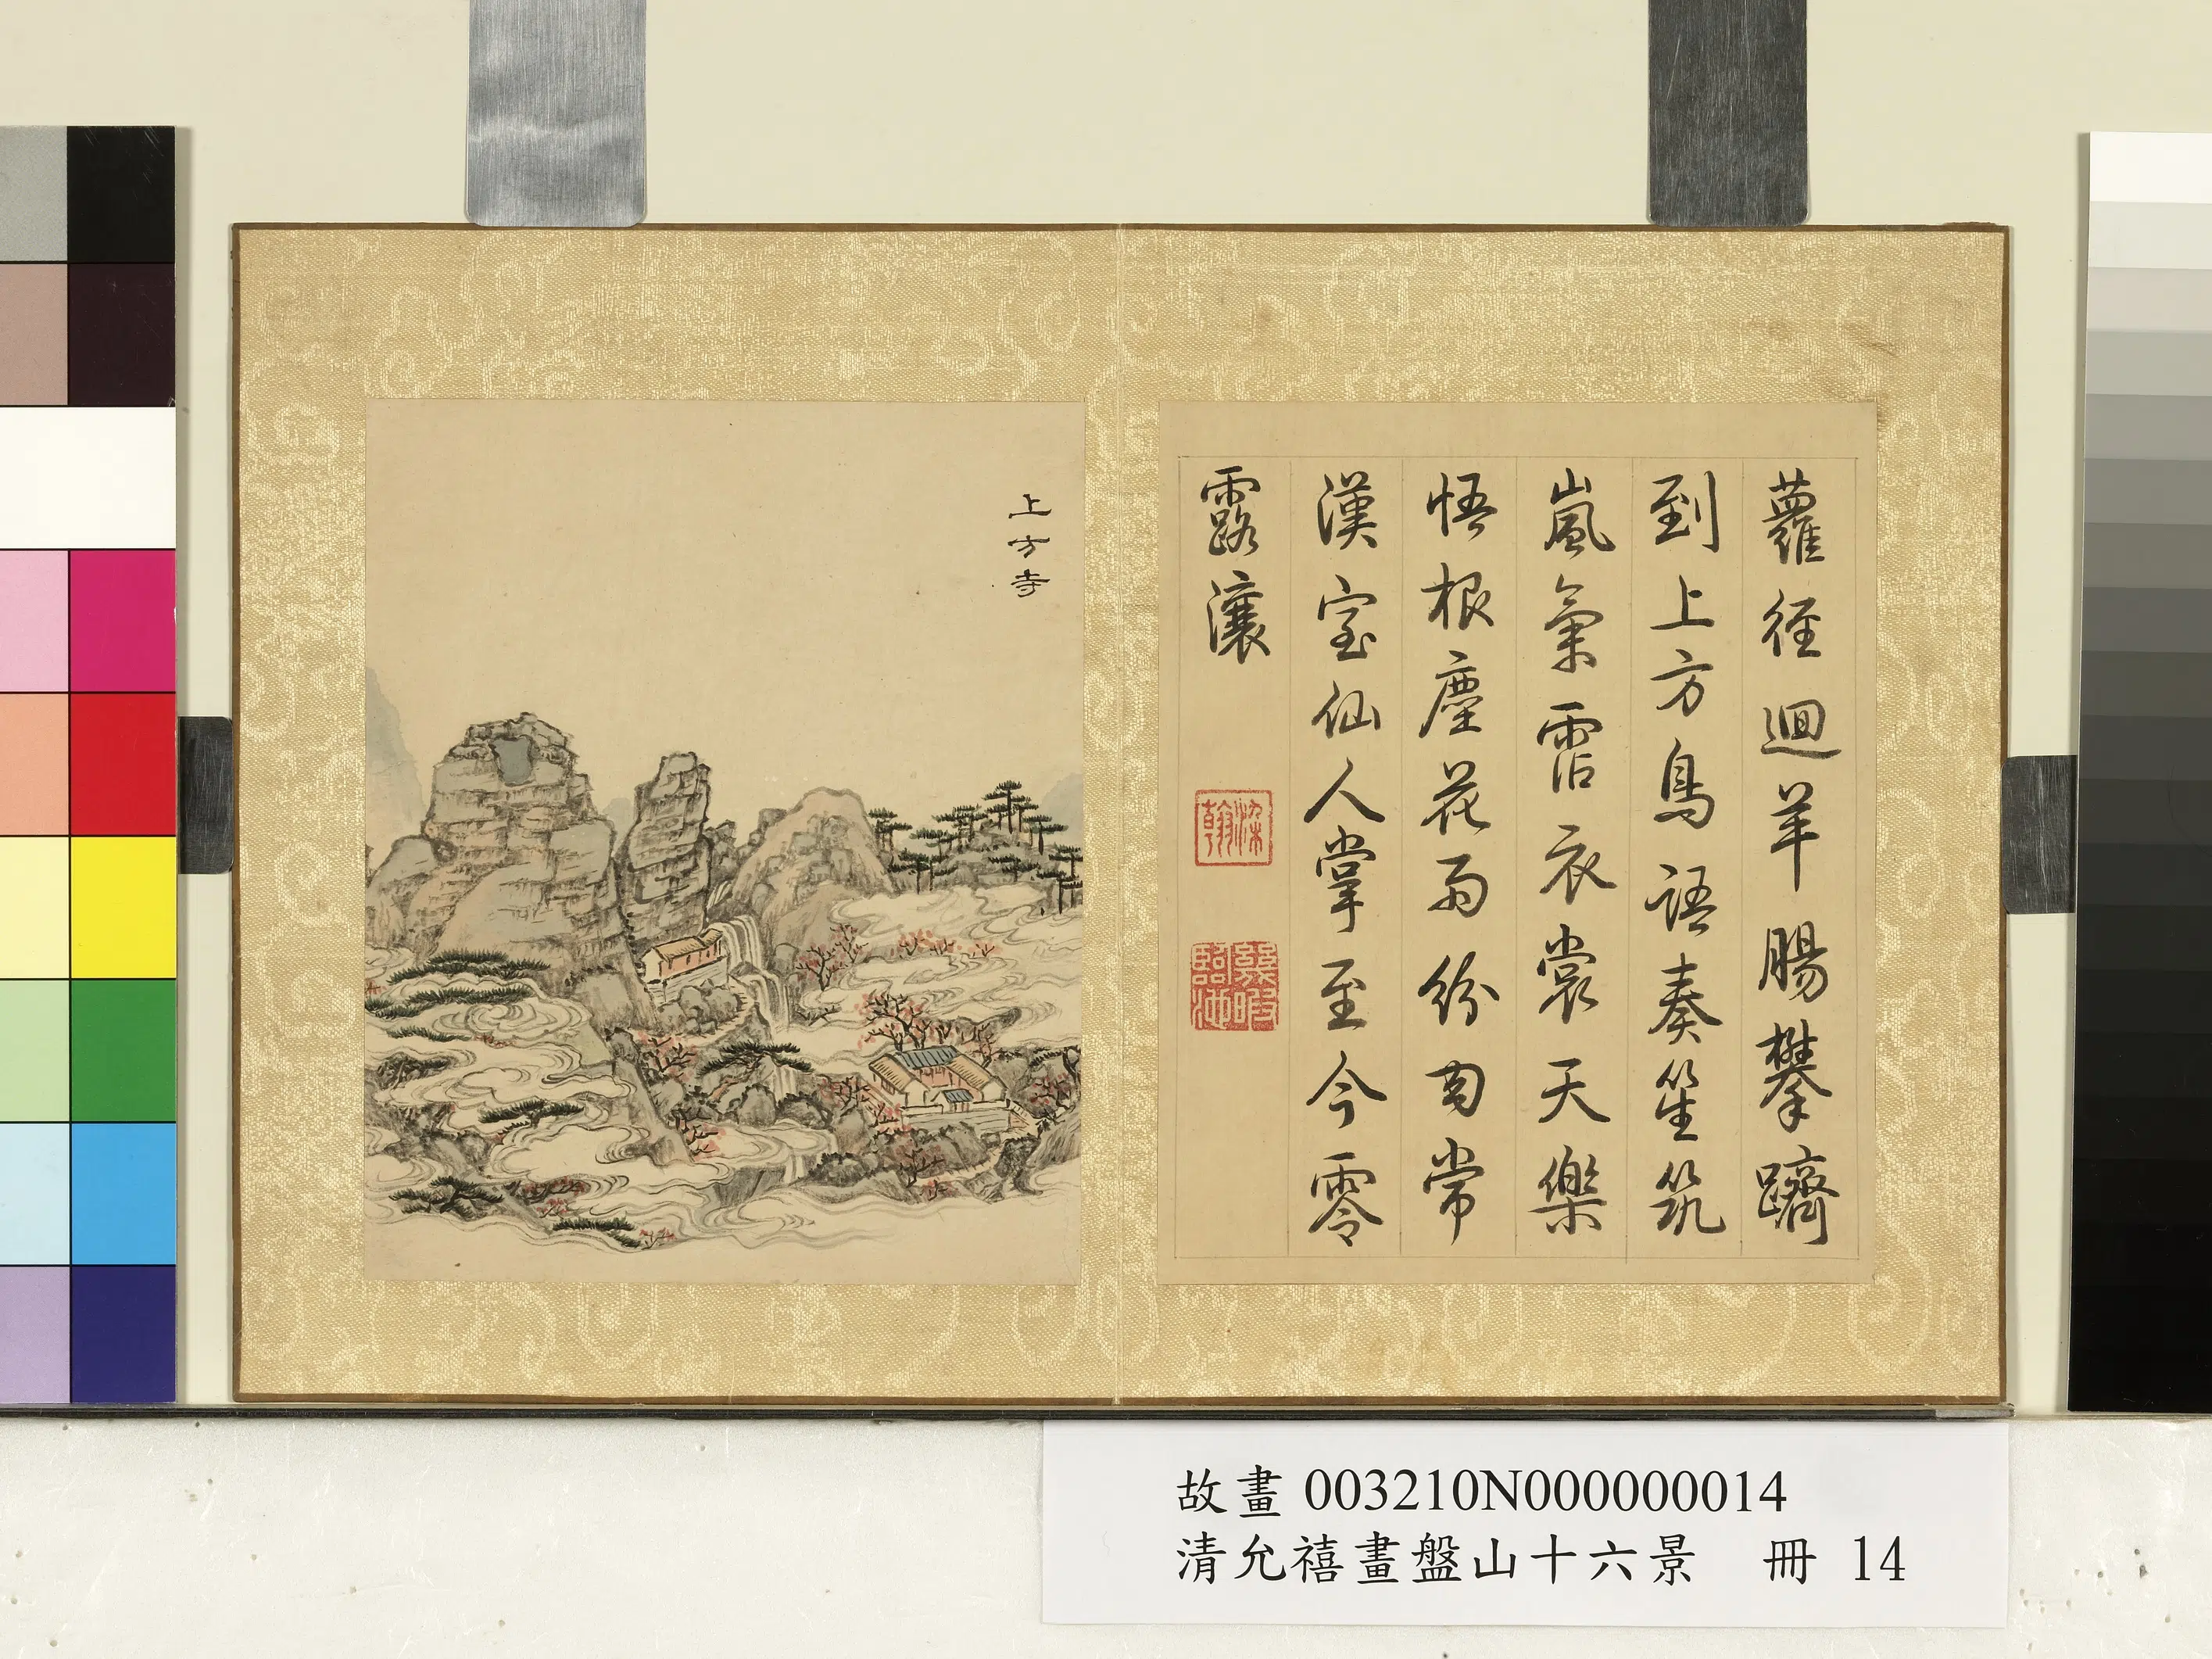 蘿径迴羊腸攀躋
到上方鳥語奏笙筑
嵐氣霑衣裳天樂
悟根塵花雨紛常
漢室仙人掌至今零
露瀼
染翰
幾暇臨池
上方寺
故畫 003210N000000014
清允禧畫盤山十六景 冊 14